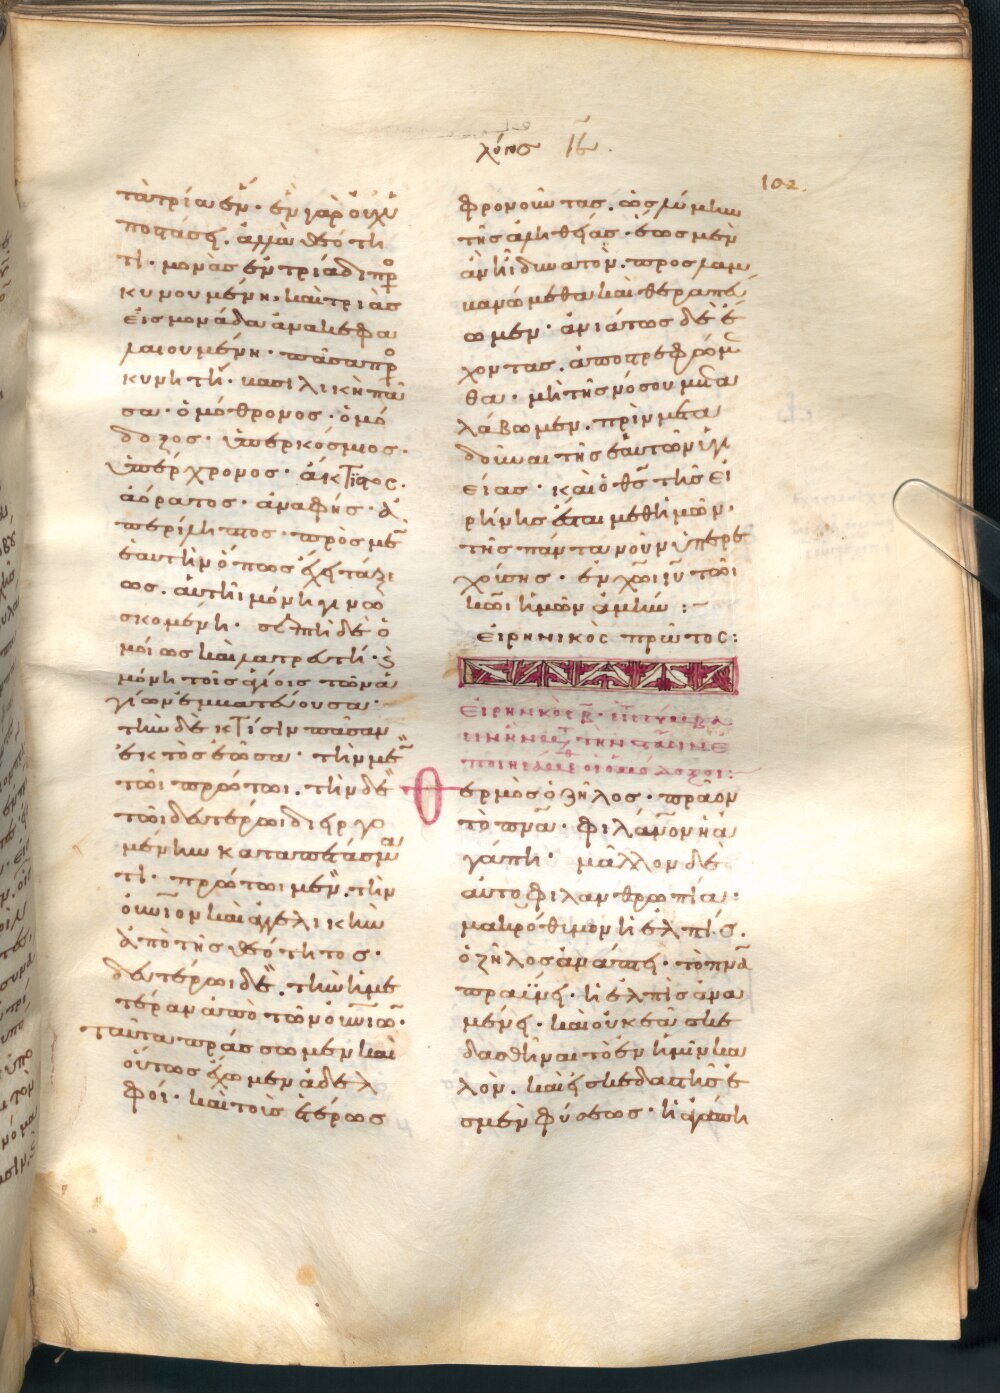 λόγος ιβ.
102.
τὰ τρία ἕν· ἓν γὰρ οὐχ ὑ
ποστάσει. ἀλλὰ θεότη
τι· μονὰς ἐν τριάδι προ
κυνουμένη. καὶ τριὰς
εἰς μονάδα ἀνακεφα
λαιουμένη· πᾶσα προ
κυνητή· βασιλικὴ πᾶ
σα· ὁμόθρονος· ὁμό
δοξος· ὑπερκόσμιος·
ὑπέρχρονος· ἄκτιστος·
ἀόρατος· ἀναφής· ἀ
περίληπτος· πρὸς μὲν
ἑαυτὴν ὅπως ἔχει τάξε
ως. αὐτῆι μόνηι γινω
σκομένηι· σεπτὴ δὲ ὁ
μοίως καὶ λατρευτή· καὶ
μόνη τοῖς ἁγίοις τῶν ἁ
γίων ἐμβατεύουσα·
τὴν δὲ κτίσιν πᾶσαν
ἐκτὸς ἐῶσα· τὴν μὲν
τῶι πρώτωι. τὴν δὲ
τῶι δευτέρωι διειργο
μένην καταπετάσμα
τι· πρώτωι μὲν. τὴν
οὐνιον καὶ ἀγγελικὴν
ἀπὸ τῆς θεότητος·
δευτέρωι δὲ. τὴν ἡμε
τέραν ἀπὸ τῶν οὐνίων·
ταῦτα πράσσωμεν καὶ
οὕτως ἔχωμεν ἀδελ
φοί· καὶ τοὺς ἑτέρως
φρονοῦντας. ὡς λύμην
τῆς ἀληθείας· ἕως μὲν
ἂν ἦι δυνατὸν. προσλαμ
βανώμεθα καὶ θεραπεύ
ωμεν· ἀνιάτως δὲ ἔ
χοντας. ἀποστρεφώμε
θα· μὴ τῆς νόσου μετα
λάβωμεν. πρὶν μετα
δοῦναι τῆς ἑαυτῶν ὑγι
είας· καὶ ὁ θς τῆς εἰ
ρήνης ἔσται μεθ ἡμῶν·
τῆς πάντα νοῦν ὑπερε
χούσης· ἐν χωι ιυ τῶι
κωι ἡμῶν ἀμήν :–
εἰρηνικὸς πρῶτος:
εἰρηνικὸς β· εἰς τὴν σύμβα
σιν ἣν μετὰ τὴν στάσιν ἐ
ποιησάμεθα οἱ ὁμόδοξοι:
Θερμὸς ὁ ζῆλος· πρᾶον
τὸ πνα· φιλάνον ἡ ἀ
γάπη· μᾶλλον δὲ
αὐτοφιλανθρωπία·
μακρόθυμον ἡ ἐλπίς.
ὁ ζῆλος ἀνάπτει· τὸ πνα
πραΰνει· ἡ ἐλπὶς ἀνα
μένει· καὶ οὐκ ἐᾶ σκε
δασθῆναι τὸ ἐν ἡμῖν κα
λόν. καὶ εἰ σκεδαστῆς ἐ
σμὲν φύσεως· ἡ ἀγάπη